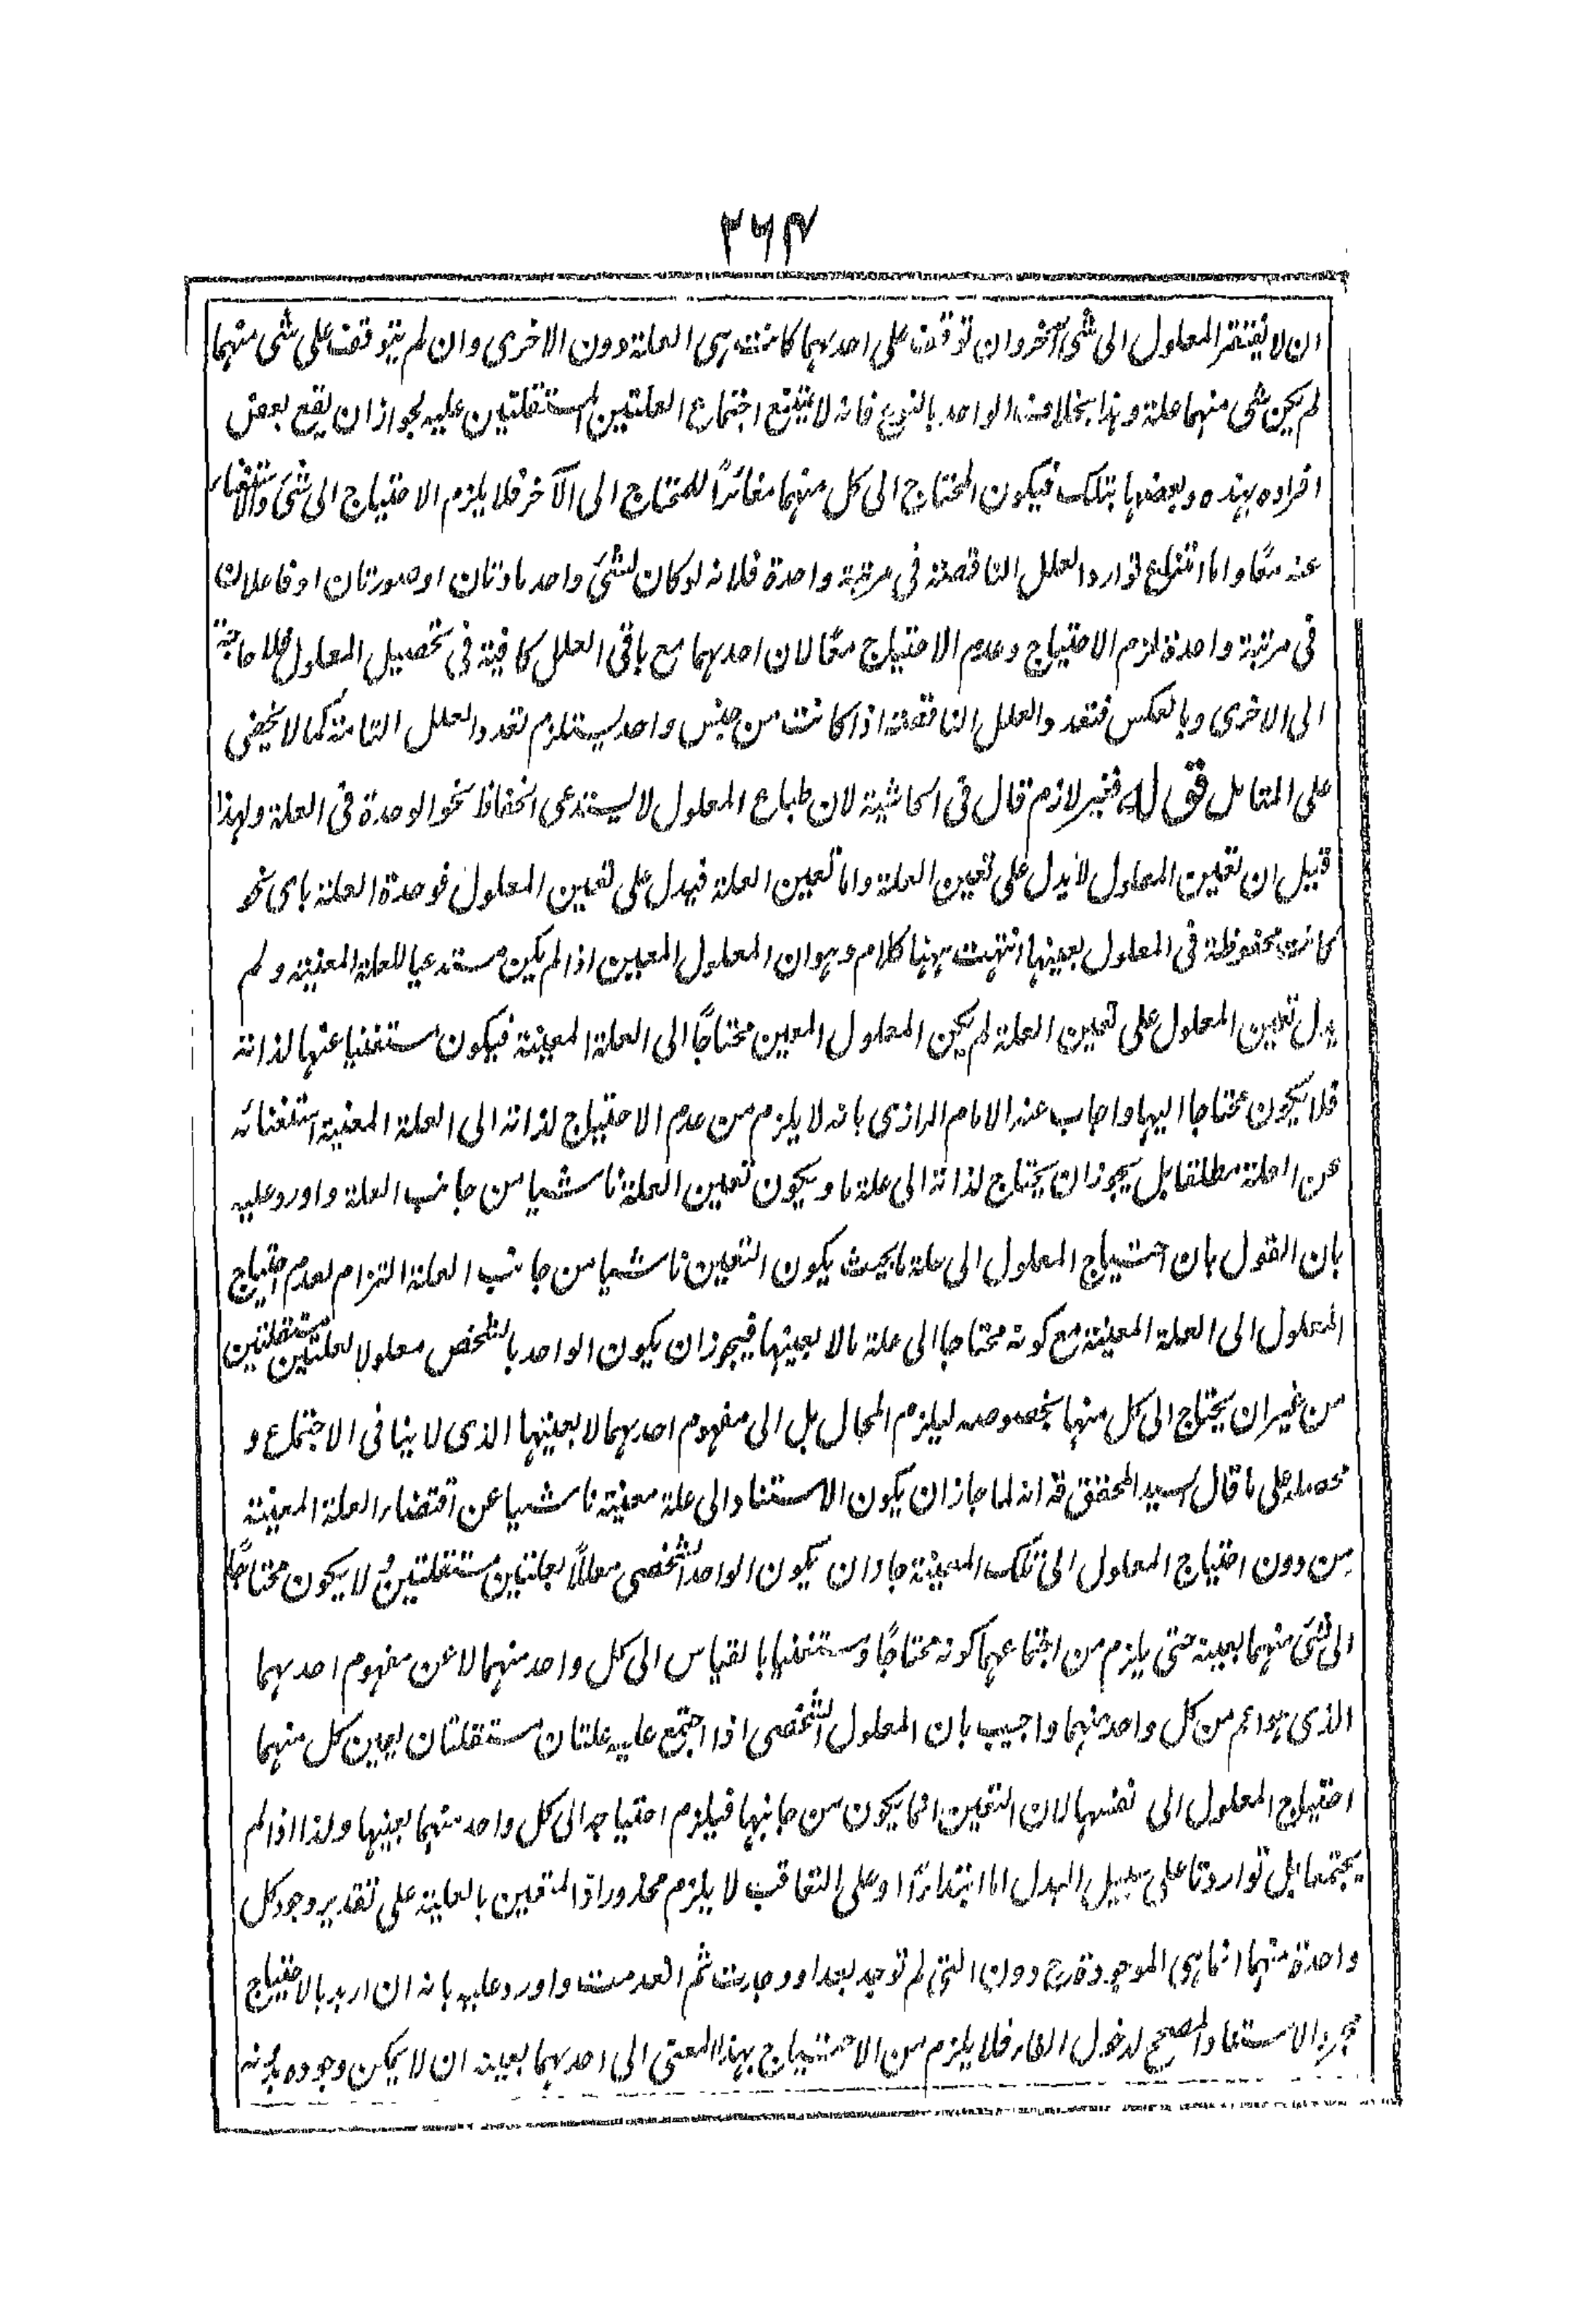 ۲۶۴
ان لا یفتقر المعلول الی شئ آخر وان توقف علی احدہما کانت ہی العلۃ دون الاخری وان لم یتوقف علی شئ منہما
لم یکن شئ منہما علۃ وہذا بخلاف الواحد بالنوع فانہ لا یمتنع اجتماع العلتین المستقلتین علیہ لجواز ان یقع بعض
افرادہ بہذہ وبعضہا بتلک فیکون المحتاج الی کل منہما مغائرًا للمحتاج الی الآخر فلا یلزم الاحتیاج الی شئ والاستغناء
عنہ معًا واما امتناع توارد العلل الناقصۃ فی مرتبۃ واحدۃ فلانہ لو کان لشئ واحد مادتان او صورتان او فاعلان
فی مرتبۃ واحدۃ لزم الاحتیاج وعدم الاحتیاج معًا لان احدہما مع باقی العلل کافیۃ فی تحصیل المعلول فلا حاجۃ
الی الاخری وبالعکس فتعدد العلل الناقصۃ اذا کانت من جنس واحد یستلزم تعدد العلل التامۃ کما لا یخفی
علی المتامل قولہ فغیر لازم قال فی الحاشیۃ لان طباع المعلول لا یستدعی انحفاظ نحو الوحدۃ فی العلۃ ولہذا
قیل ان تعین المعلول لا یدل علی تعین العلۃ واما تعین العلۃ فیدل علی تعین المعلول فوحدۃ العلۃ بای نحو
کانت محفوظۃ فی المعلول بعینہا انتہت ہہنا کلام وہو ان المعلول المعین اذا لم یکن مستدعیا للعلۃ المعینۃ ولم
یدل تعین المعلول علی تعین العلۃ لم یکن المعلول المعین محتاجًا الی العلۃ المعینۃ فیکون مستغنیا عنہا لذاتہ
فلا یکون محتاجا الیہا واجاب عنہ الامام الرازی بانہ لا یلزم من عدم الاحتیاج لذاتہ الی العلۃ المعینۃ استغنائہ
عن العلۃ مطلقا بل یجوز ان یحتاج لذاتہ الی علۃ ما ویکون تعین العلۃ ناشیا من جانب العلۃ واورد علیہ
بان القول بان احتیاج المعلول الی علۃ ما بحیث یکون التعین ناشیا من جانب العلۃ التزام لعدم احتیاج
المعلول الی العلۃ المعینۃ مع کونہ محتاجا الی علۃ ما لا بعینہا فیجوز ان یکون الواحد بالشخص معلولا لعلتین مستقلتین
من غیر ان یحتاج الی کل منہا بخصوصہ لیلزم المحال بل الی مفہوم احدہما لا بعینہا الذی لا ینافی الاجتماع و
محصلہ علی ما قال السید المحقق قہ انہ لما جاز ان یکون الاستناد الی علۃ معینۃ ناشیا عن اقتضاء العلۃ المعینۃ
من دون احتیاج المعلول الی تلک المعینۃ جاز ان یکون الواحد الشخصی معللًا بعلتین مستقلتین ولا یکون محتاجًا
الی شئ منہما بعینہ حتی یلزم من اجتماعہما کونہ محتاجًا ومستغنیا بالقیاس الی کل واحد منہما لا عن مفہوم احدہما
الذی ہو اعم من کل واحد منہما واجیب بان المعلول الشخصی اذا اجتمع علیہ علتان مستقلتان یعین کل منہما
احتیاج المعلول الی نفسہا لان التعین انما یکون من جانبہا فیلزم احتیاجہ الی کل واحد منہما بعینہا ولذا اذا لم
یجتمعا بل تواردتا علی سبیل البدل اما ابتداءً او علی التعاقب لا یلزم محذور اذ المتعین بالعلیۃ علی تقدیر وجود کل
واحدۃ منہما انما ہی الموجودۃ ح دون التی لم توجد بعد او وجدت ثم انعدمت واورد علیہ بانہ ان ارید بالاحتیاج
مجرد الاستناد المصحح لدخول الفاء فلا یلزم من الاحتیاج بہذا المعنی الی احدہما بعینہ ان لا یمکن وجودہ بدونہ